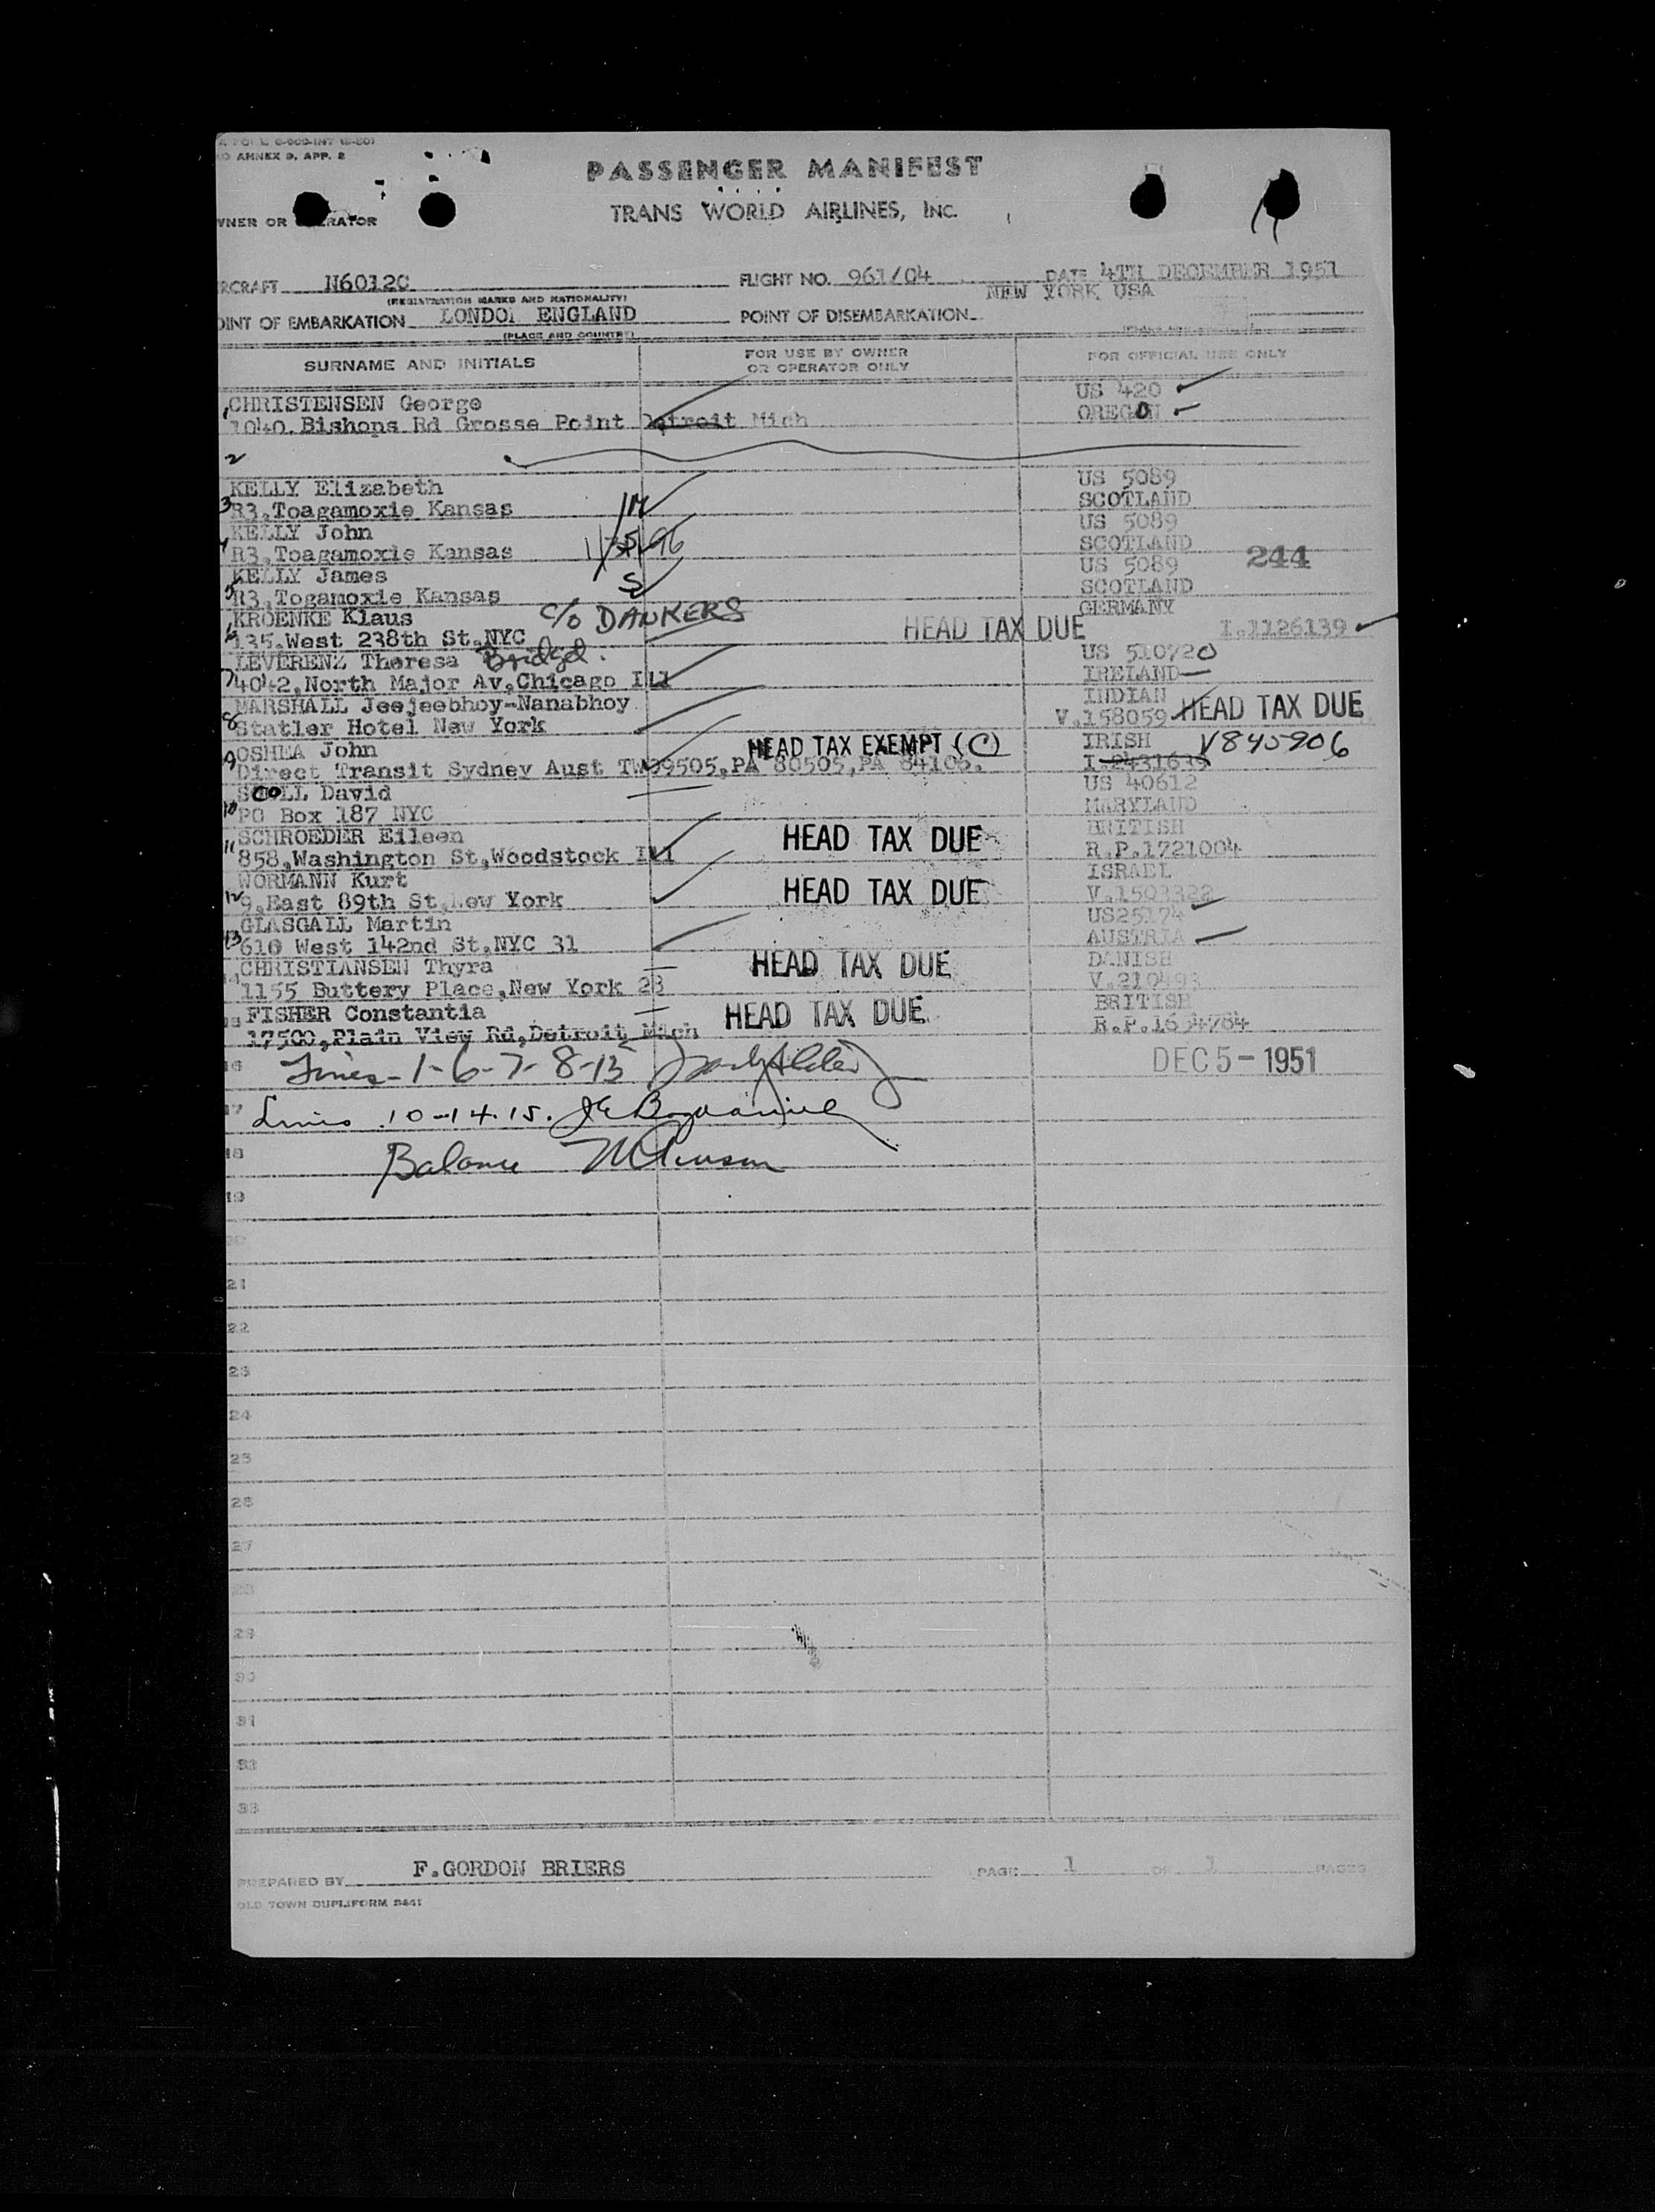 ANNEX 9, APP. 2
PASSENGER MANIFEST
TRANS WORLD AIRLINES, INC.
WNER OR OPERATOR
RCRAFT N6012C FLIGHT NO. 961/04 DATE 4TH DECEMBER 1951
(REGISTRATION MARKS AND NATIONALITY) NEW YORK USA
OINT OF EMBARKATION LONDON ENGLAND POINT OF DISEMBARKATION
(PLACE AND COUNTRY)
SURNAME AND INITIALS FOR USE BY OWNER OR OPERATOR ONLY FOR OFFICIAL USE ONLY
CHRISTENSEN George US 420
1 1040. Bishops Rd Grosse Point Detroit Mich OREGON
2
KELLY Elizabeth US 5089
3 R3,Toagamoxie Kansas M SCOTLAND
KELLY John US 5089
4 R3,Toagamoxie Kansas SCOTLAND
KELLY James S US 5089 244
5 R3,Togamoxie Kansas SCOTLAND
KROENKE Klaus c/o DANKERS GERMANY
6 135.West 238th St.NYC HEAD TAX DUE I.1126139
LEVERENZ Theresa Bridgd. US 510720
7 4042,North Major Av,Chicago Ill IRELAND
MARSHALL Jeejeebhoy-Nanabhoy INDIAN
8 Statler Hotel New York V.158059 HEAD TAX DUE
OSHEA John HEAD TAX EXEMPT (C) IRISH V845906
9 Direct Transit Sydney Aust TW09505,PA 80505,PA 84106.
David US 40612
10 PO Box 187 NYC MARYLAND
SCHROEDER Eileen HEAD TAX DUE BRITISH
11 858,Washington St,Woodstock Ill R.P.1721004
WORMANN Kurt HEAD TAX DUE ISRAEL
12 9,East 89th St,New York V.1503322
GLASGALL Martin US25174
13 610 West 142nd St,NYC 31 AUSTRIA
CHRISTIANSEN Thyra HEAD TAX DUE DANISH
1155 Buttery Place,New York 23 V.210493
FISHER Constantia HEAD TAX DUE BRITISH
17500,Plain View Rd,Detroit Mich
16 Lines-1-6-7-8-13 DEC 5-1951
17 Lines 10-14.15.
18 Balance
19
20
21
22
23
24
25
26
27
28
29
30
31
32
33
PREPARED BY F.GORDON BRIERS PAGE 1 OF 1 PAGES
OLD TOWN DUPLIFORM